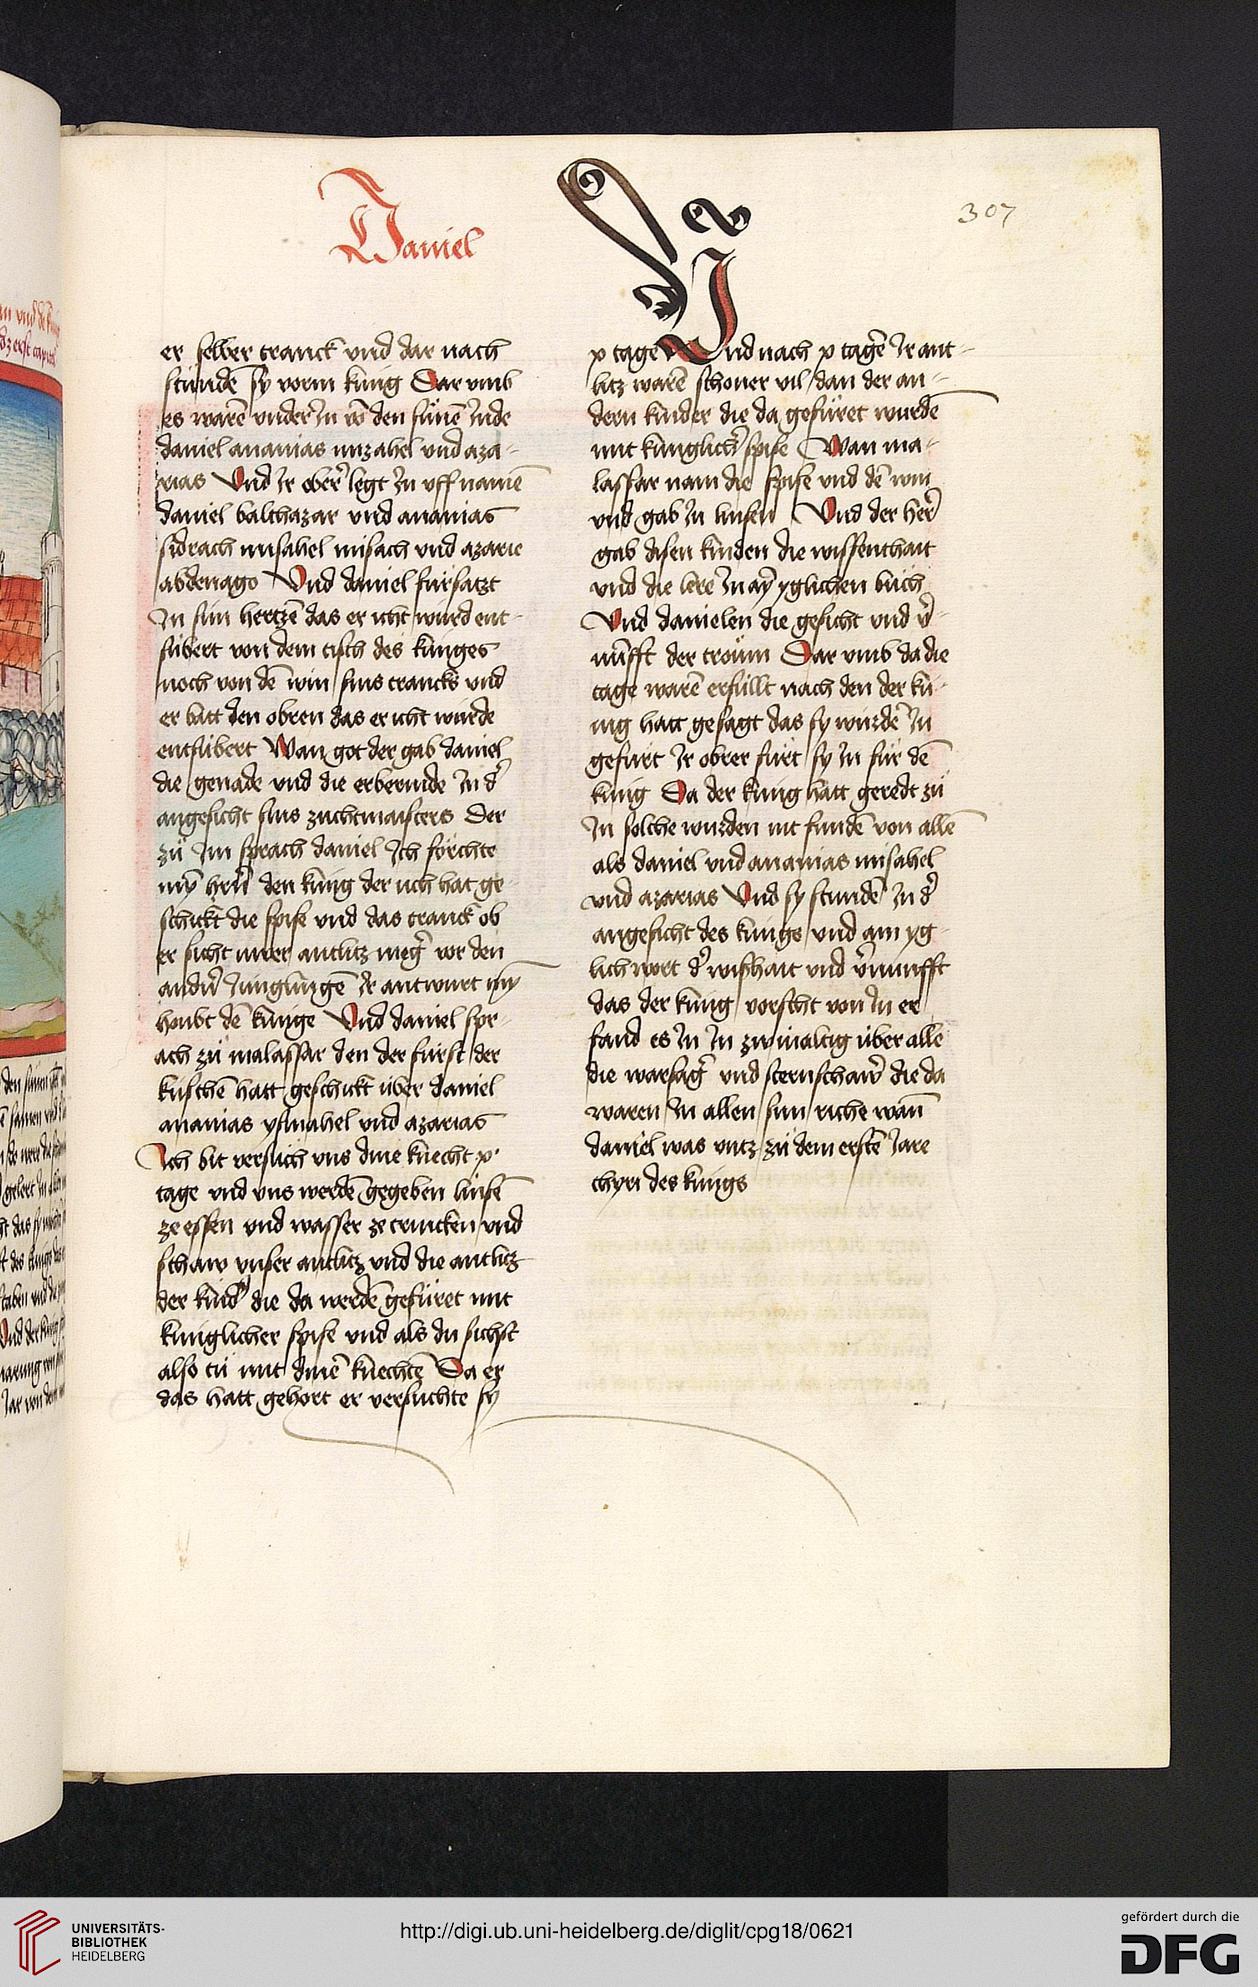 Daniel
307
er selber tranck vnd dar nach
stundē sy vorm kúnig Dar vmb
es warē vnder Jn vō den súnē Jude
daniel ananias mizahel vnd aza-
rias Vnd Jr ober legt Jn vff namē
daniel balthazar vnd ananias
sidrach misahel misach vnd azarie
abdenago Vnd daniel fúrsatzt
Jn sim hertzē das er icht wurd ent-
súbert von dem tisch des kúnges
noch von dē win sins trancks vnd
er batt den obren das er icht wurde
entsúbert Wan got der gab daniel
die genade vnd die erbermde Jn dˀ
angesicht sins zuchtmaisters Der
zů Jm sprach daniel Jch fórchte
mȳ hˀrn den kúng der úch hat ge-
schickt die spise vnd das tranck ob
er sicht úwer antlitz megˀ vor den
andˀn Júnglingē Jr antwurt mȳ
houbt dē kúnige Vnd daniel spr-
ach zů malassar den der fúrst der
kúschē hatt geschickt úber daniel
ananias ysmahel vnd azarias
Jch bit versůch vns dine knecht x
tage vnd vns werdē gegeben linsē
ze essen vnd wasser ze trincken vnd
schaw vnser antlitz vnd die antlitz
der kindˀ die da werdē gefúret mit
kúniglicher spise vnd als du sichst
also tů mit dinē knechtē Da er
das hatt gehort er versuchte sy
x tage Vnd nach x tagē Jr ant-
litz warē schoner vil dan der an-
dern kinder die da gefúret wurdē
mit kúnglichˀ spise Wan ma-
lassar nam die spise vnd dē win
vnd gab Jn linsen Vnd der herˀ
gab disen kinden die wissenthait
vnd die lere Jn aȳ yglichen bůch
Vnd danielen die gesicht vnd vˀ-
núfft der tróum Dar vmb da die
tage warē erfúllt nach den der kú-
nig hatt gesagt das sy wurdē Jn
gefúrt Jr obrer fúrt sy Jn fúr dē
kúng Da der kúng hatt geredt zů
Jn solche wurden nit fundē von allē
als daniel vnd ananias misahel
vnd azarias Vnd sy stundē Jn dˀ
angesicht des kúnigs vnd am yg-
lich wort dˀ wishait vnd vˀnunfft
das der kúng vorscht von Jn er
fand es Jn Jn zwimaltig úber alle
die warsagˀ vnd sternschawˀ die da
waren Jn allen sim riche wan̄
daniel was vntz zů dem erstē Jare
chyri des kúngs
UNIVERSITÄTS-
BIBLIOTHEK
HEIDELBERG
http://digi.ub.uni-heidelberg.de/diglit/cpg18/0621
gefördert durch die
DFG